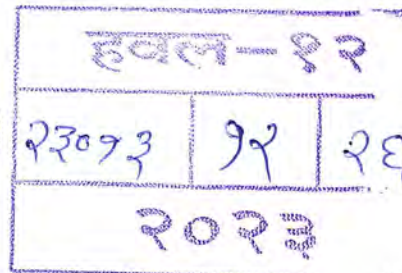 हवल-१२
२३०१३ १२ २६
२०२३